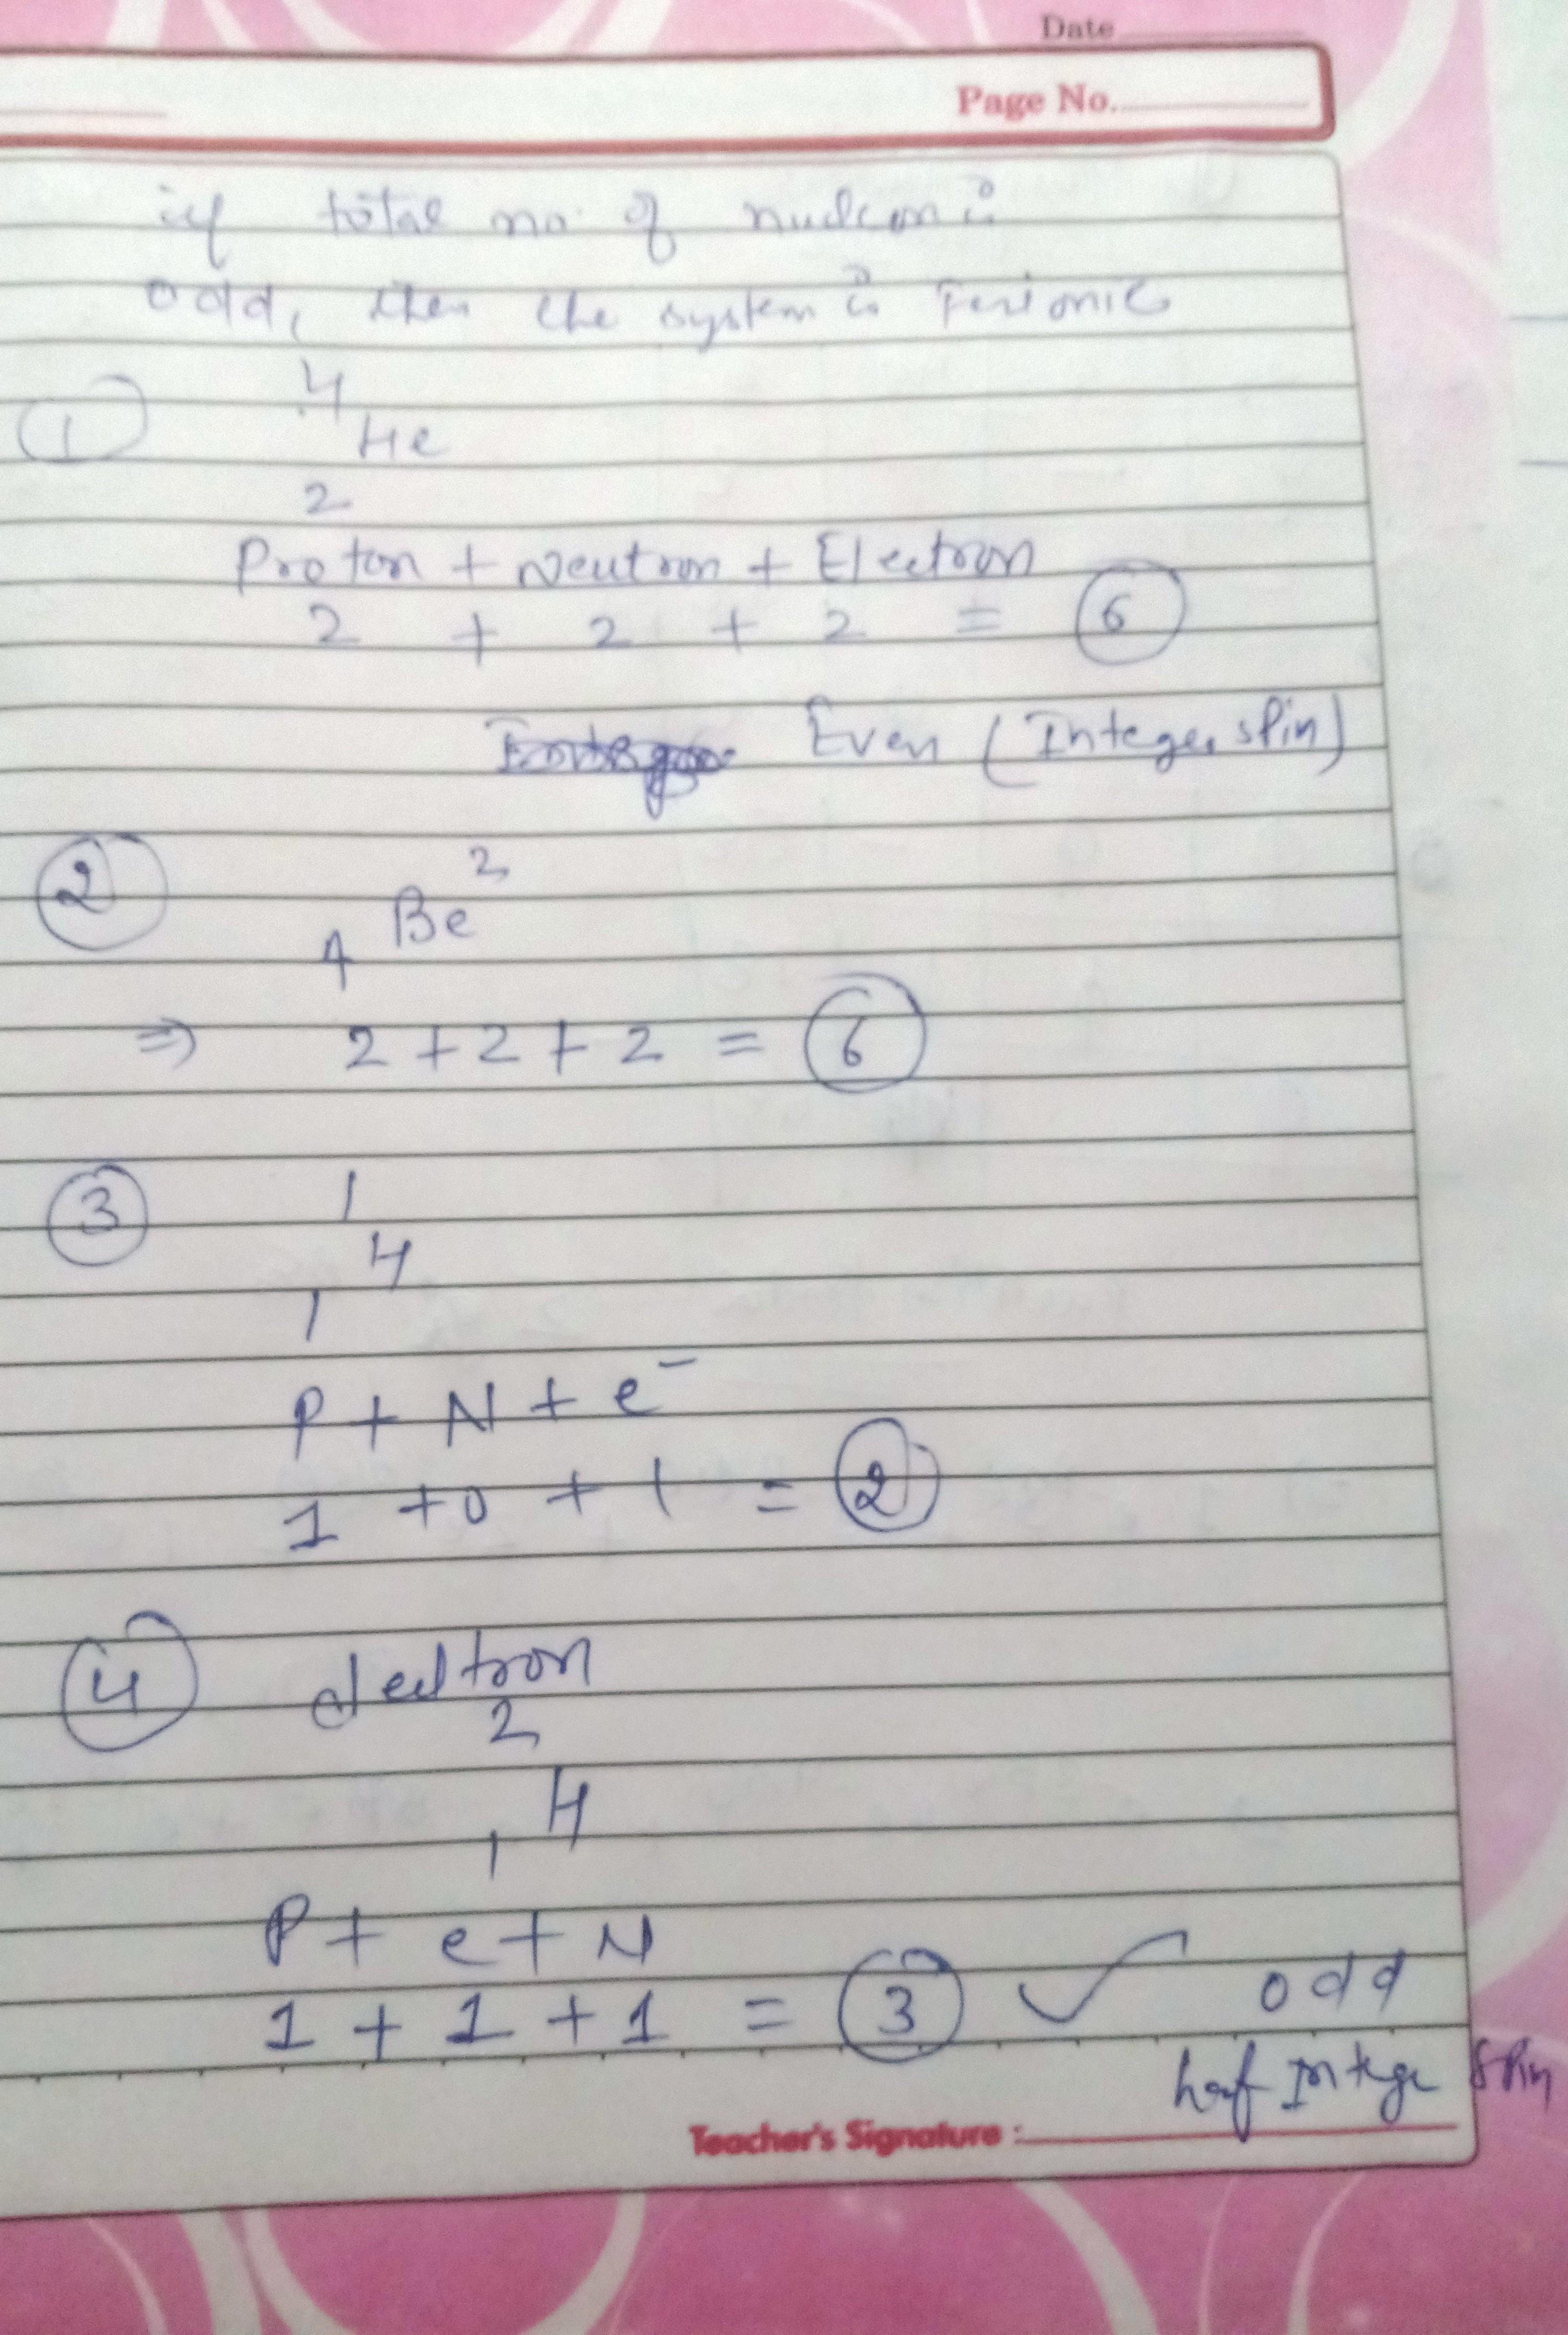 Date
Page No.
if total no. of nucleon is
odd, then the system is Ferionic
1
4
He
2
Proton + Neutron + Electron
2 + 2 + 2 = 6
Even (Integer spin)
2
2
Be
4
⇒ 2 + 2 + 2 = 6
3
1
H
1
P + N + e⁻
1 + 0 + 1 = 2
4 deutron
2
H
1
P + e + N
1 + 1 + 1 = 3 ✓ odd
half Intege spin
Teacher's Signature :